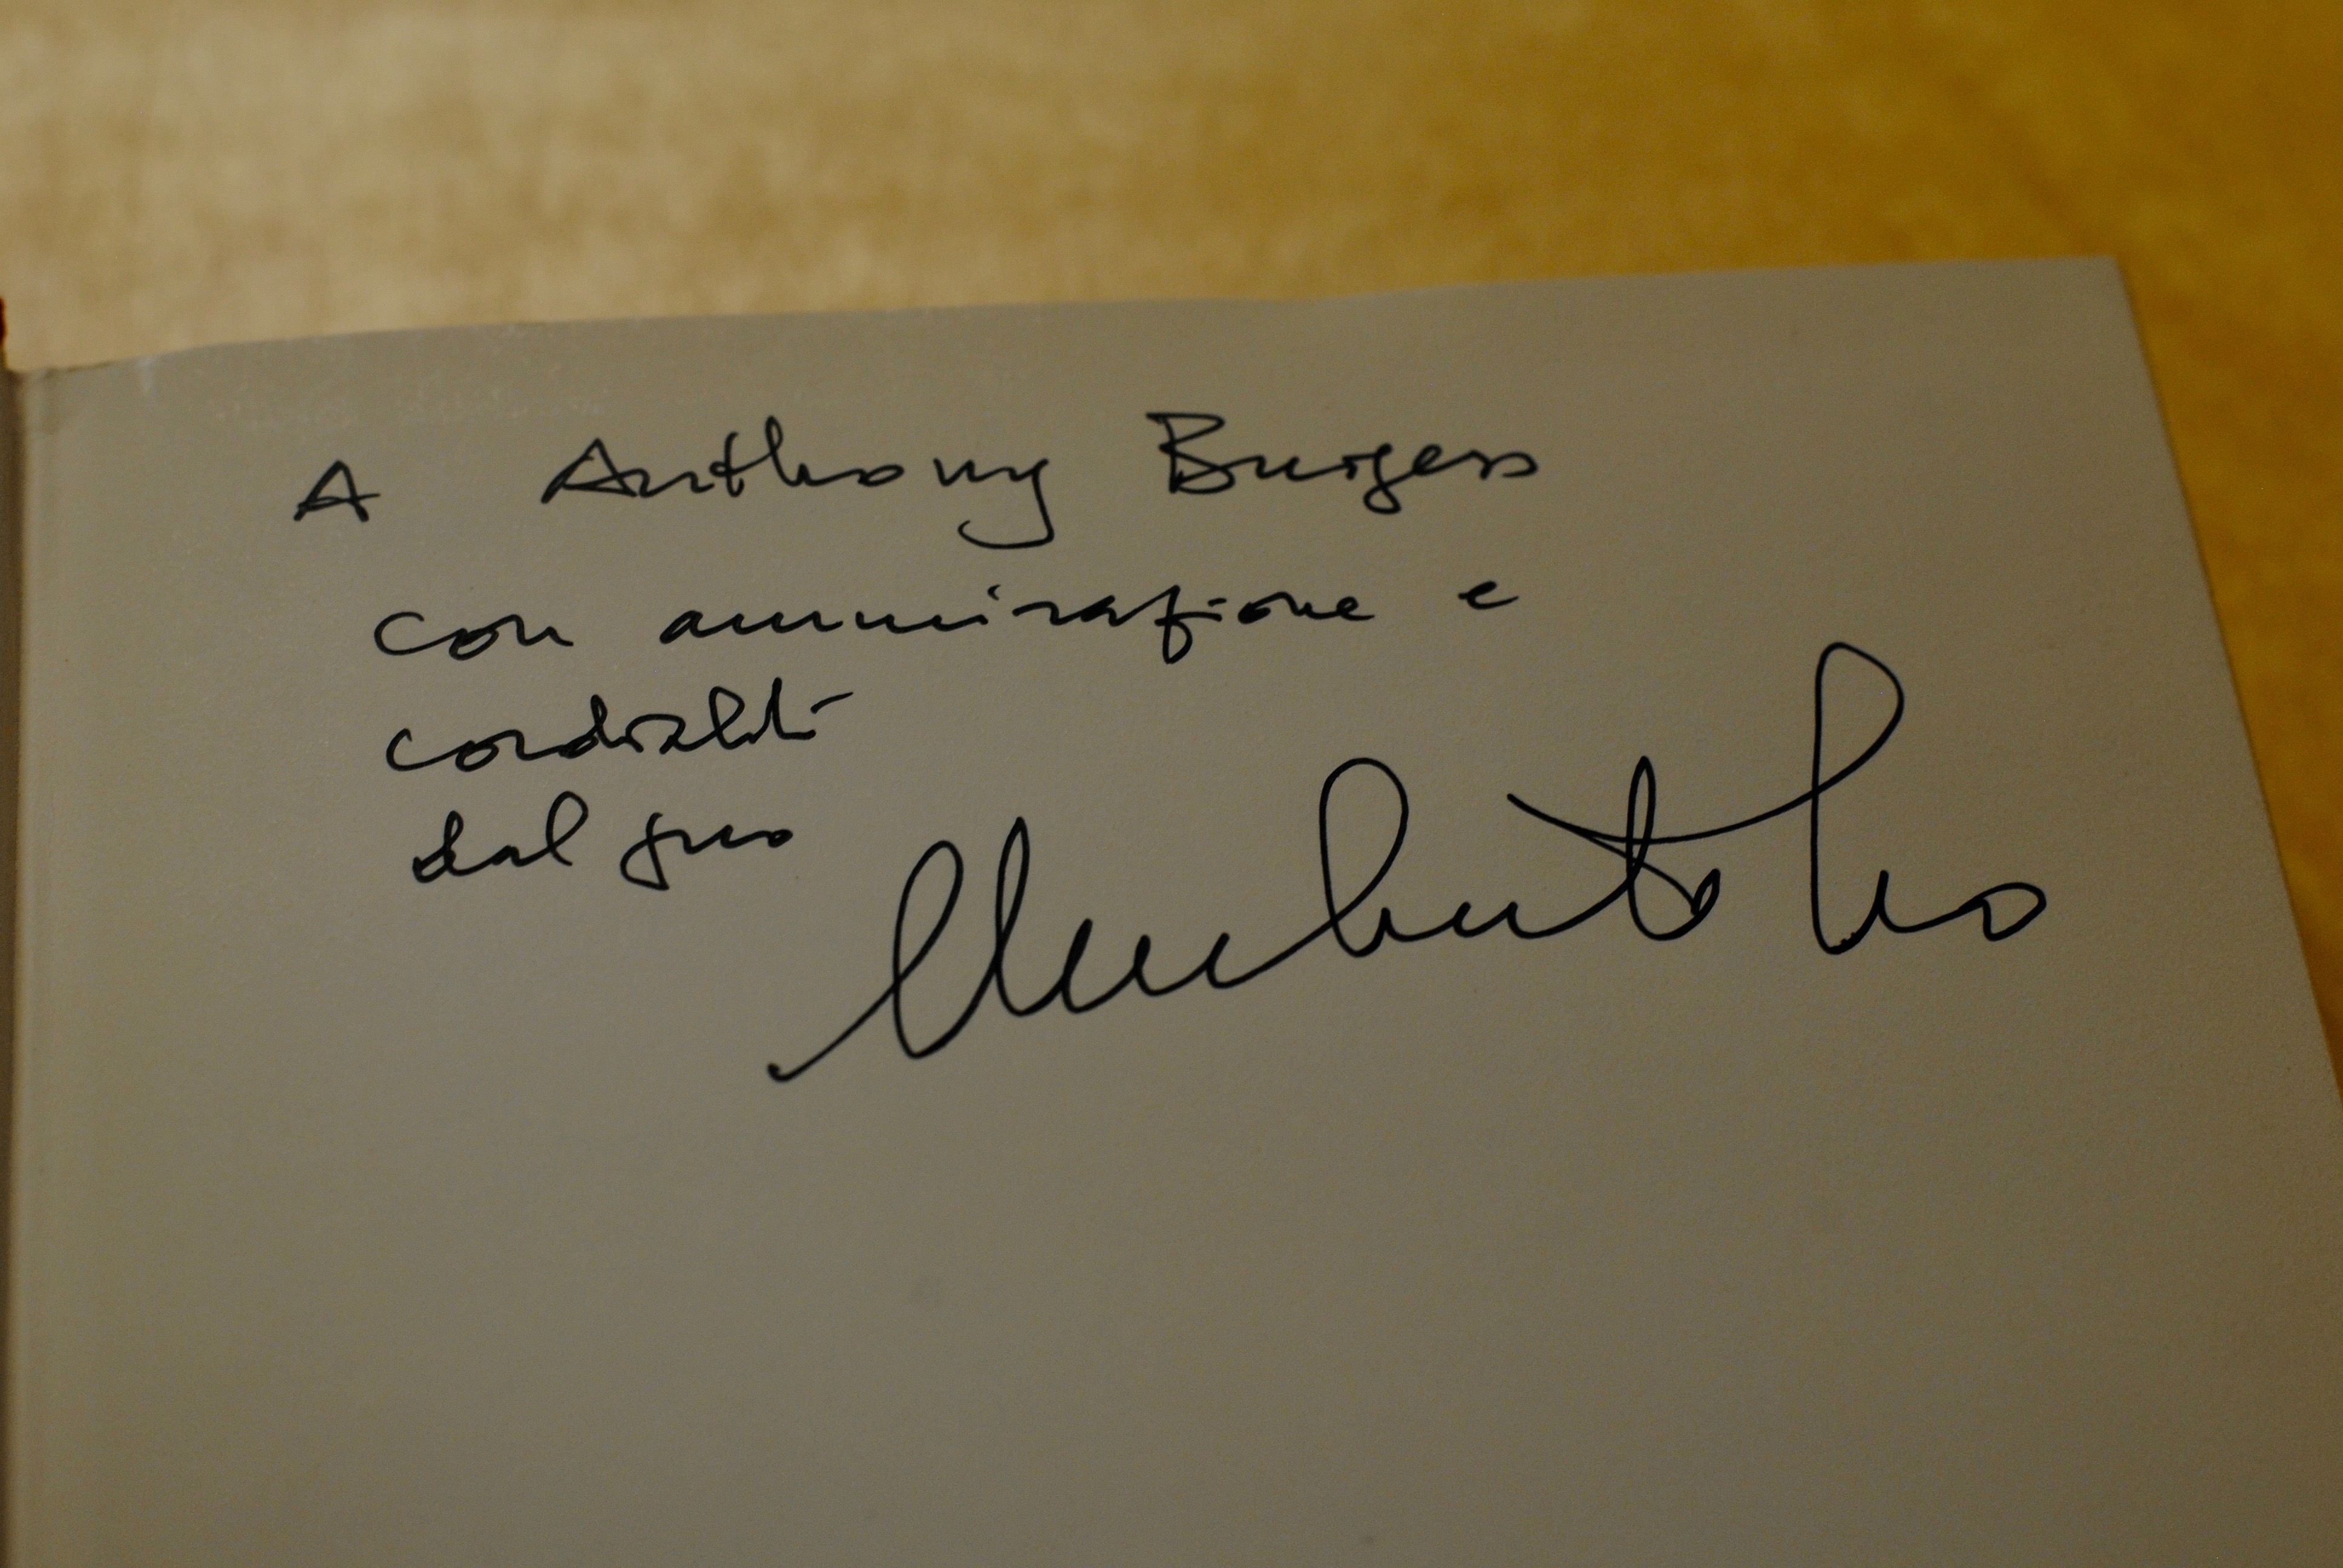 A Anthony Burgess
con ammirazione e
cordialità
dal suo
Umberto Eco